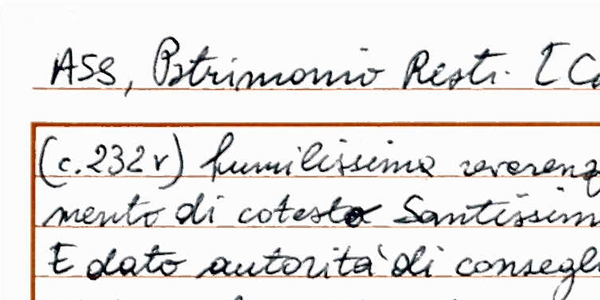 ASS, Patrimonio Resti. [Co
(c.232v) humilissima reverenz
mento di cotesto Santissim
E dato autorità di consegli